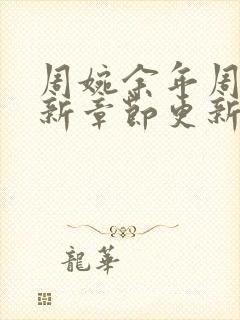 周婉余年周
新章節更新
龍華